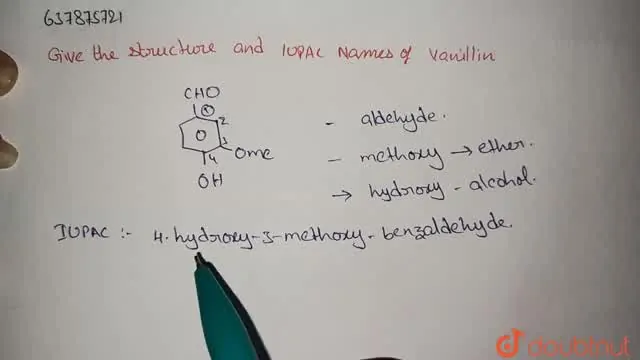 637875721
Give the structure and IUPAC Names of Vanillin
CHO
1
2
3
4
OMe
OH
- aldehyde.
- methoxy → ether.
→ hydroxy - alcohol.
IUPAC :- 4-hydroxy-3-methoxy-benzaldehyde.
doubtnut